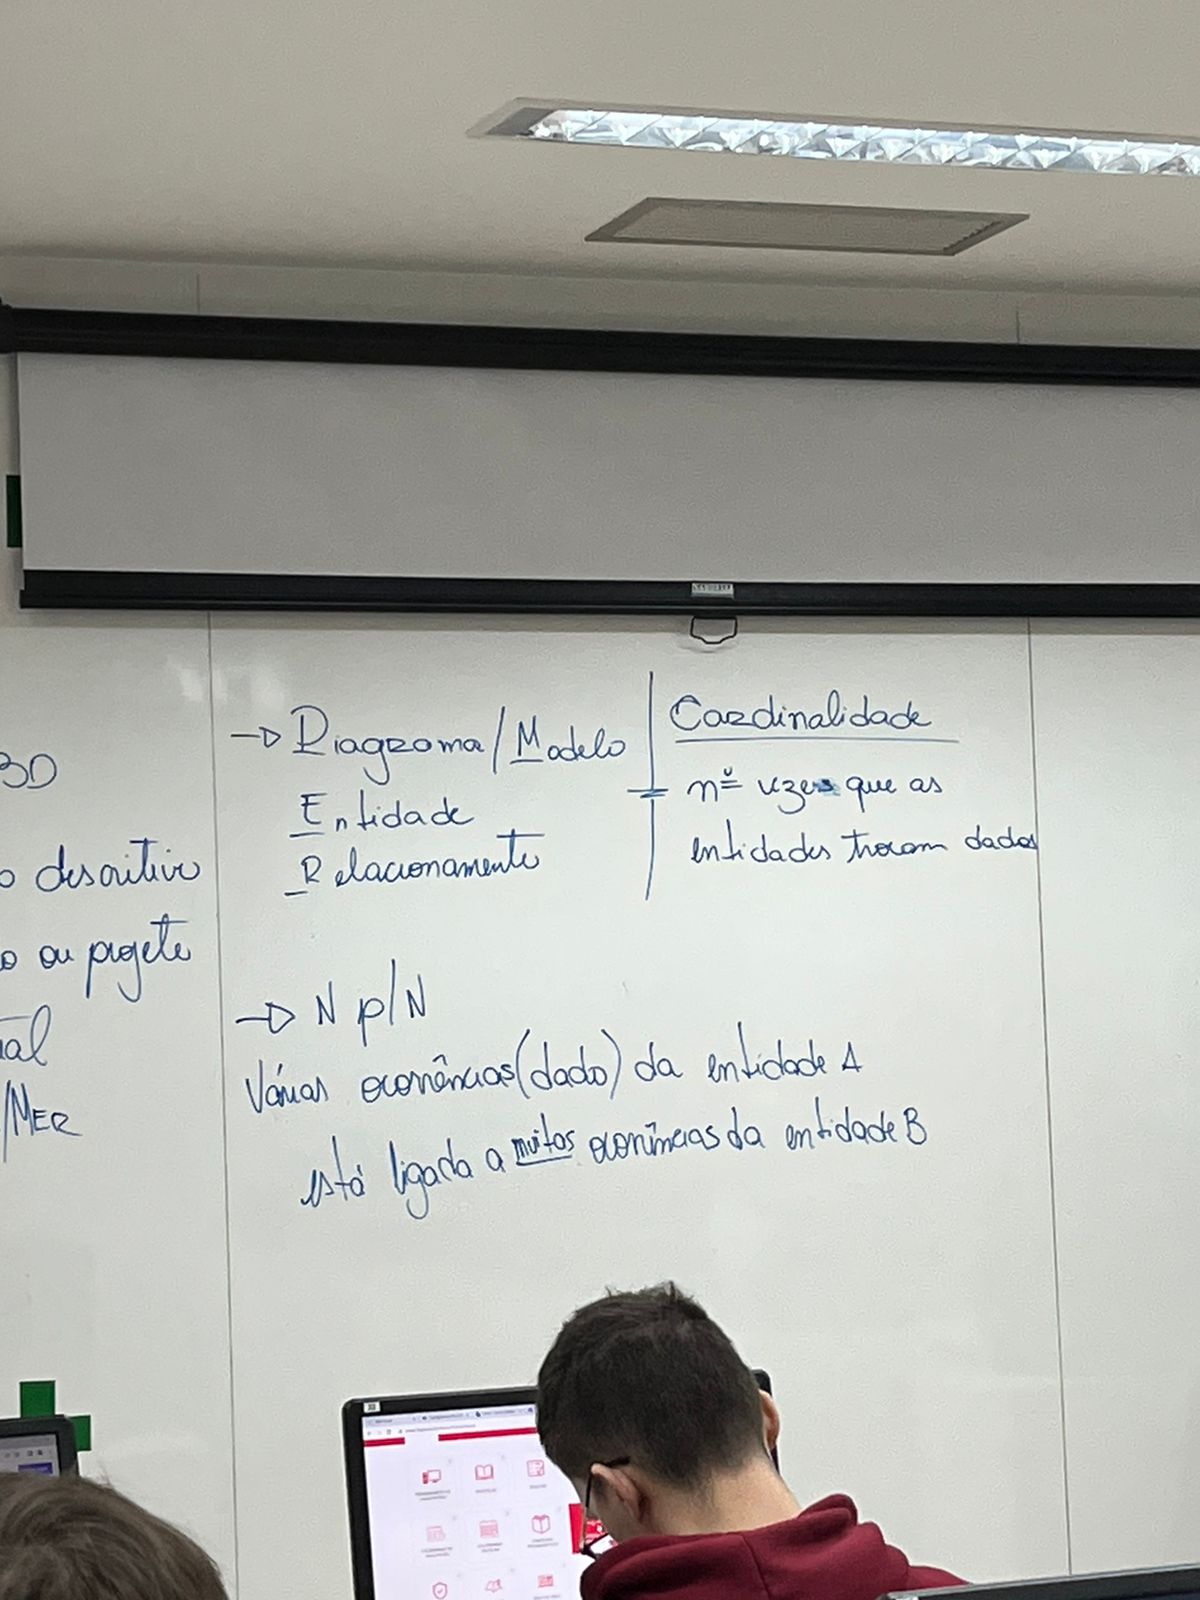 BD
o descritivo
o ou projeto
ual
/MER
→ Diagrama/Modelo
Entidade
Relacionamento
Cardinalidade
nº vezes que as
entidades trocam dados
→ N p/N
Várias ocorrências(dado) da entidade A
está ligada a muitos ocorrências da entidade B